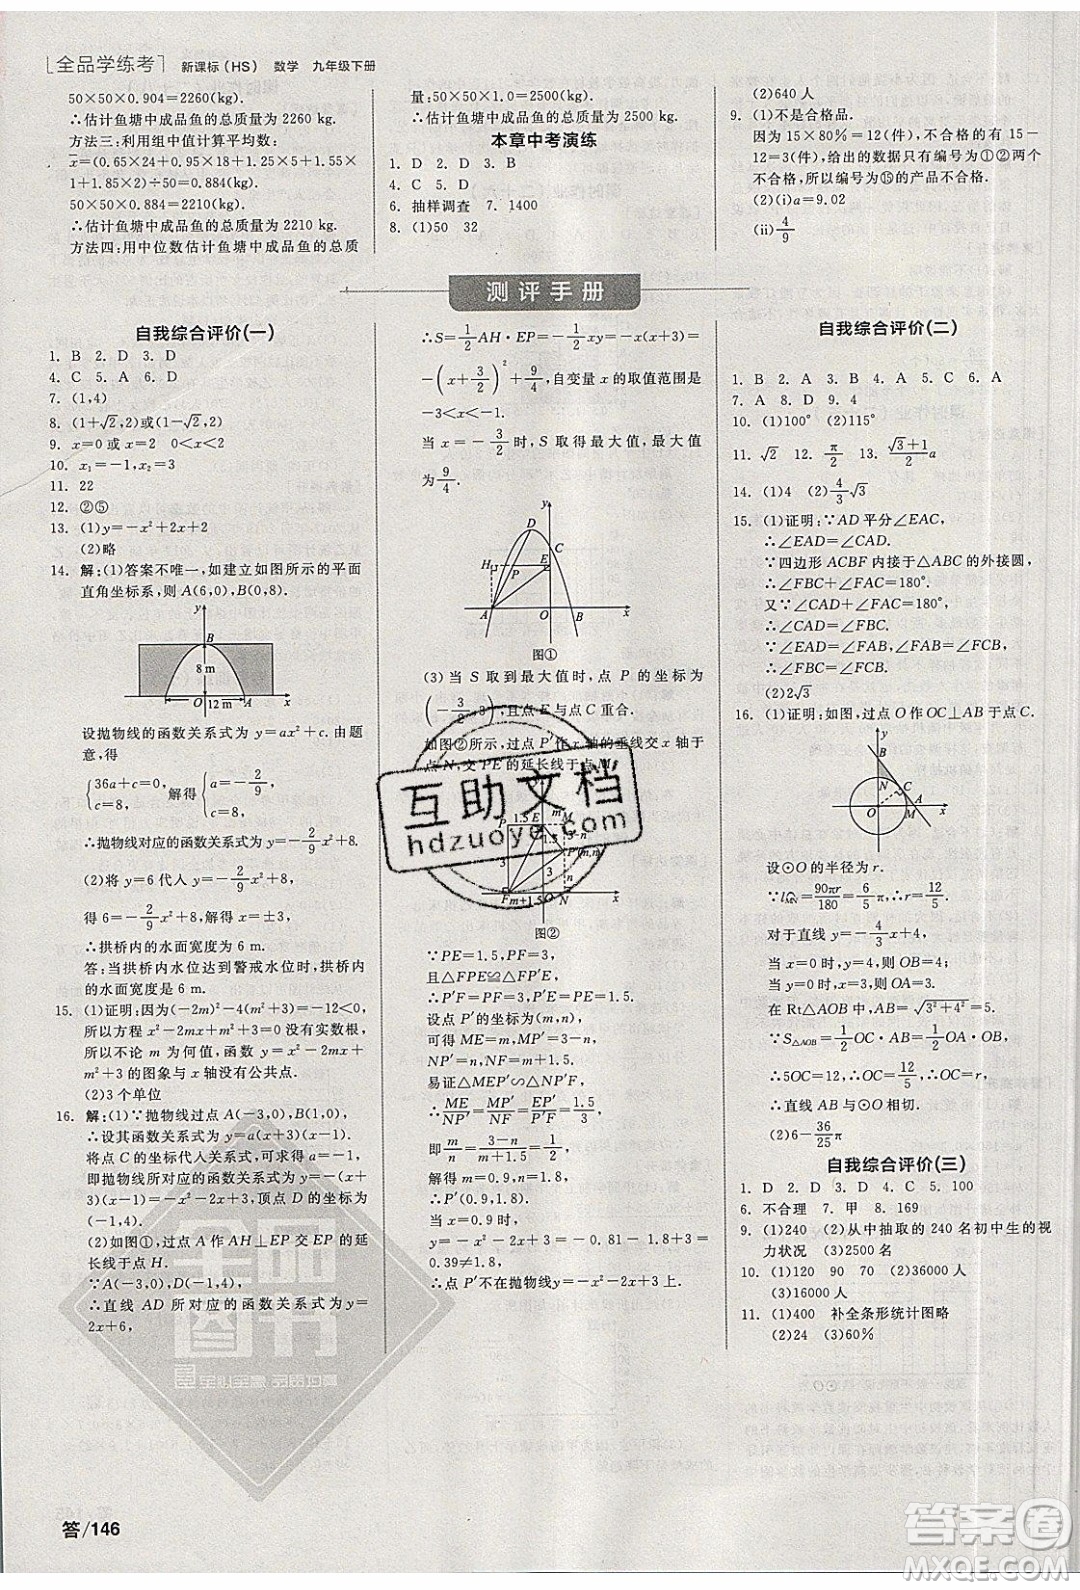 全品学练考 新课标(HS) 数学 九年级下册
50×50×0.904=2260(kg).
∴估计鱼塘中成品鱼的总质量为 2260 kg.
方法三:利用组中值计算平均数:
x̄=(0.65×24+0.95×18+1.25×5+1.55×
1+1.85×2)÷50=0.884(kg),
50×50×0.884=2210(kg).
∴估计鱼塘中成品鱼的总质量为 2210 kg.
方法四:用中位数估计鱼塘中成品鱼的总质
量:50×50×1.0=2500(kg).
∴估计鱼塘中成品鱼的总质量为 2500 kg.
本章中考演练
1. D 2. D 3. B
4. C 5. D
6. 抽样调查 7. 1400
8. (1)50 32
(2)640 人
9. (1)不是合格品.
因为 15×80%=12(件),不合格的有 15-
12=3(件),给出的数据只有编号为①②两个
不合格,所以编号为⑮的产品不合格.
(2)(i)a=9.02
(ii)4/9
测评手册
自我综合评价(一)
1. B 2. D 3. D
4. C 5. A 6. D
7. (1,4)
8. (1+√2,2)或(1-√2,2)
9. x=0 或 x=2 0<x<2
10. x₁=-1,x₂=5
11. 22
12. ②⑤
13. (1)y=-x²+2x+2
(2)略
14. 解:(1)答案不唯一,如建立如图所示的平面
直角坐标系,则 A(6,0),B(0,8).
y
B
8 m
O 12 m A x
设抛物线的函数关系式为 y=ax²+c. 由题
意,得
{36a+c=0, c=8, 解得{a=-2/9, c=8.
∴抛物线对应的函数关系式为 y=-2/9x²+8.
(2)将 y=6 代入 y=-2/9x²+8,
得 6=-2/9x²+8,解得 x=±3,
∴拱桥内的水面宽度为 6 m.
答:当拱桥内水位达到警戒水位时,拱桥内
的水面宽度为 6 m.
15. (1)证明:因为(-2m)²-4(m²+3)=-12<0,
所以方程 x²-2mx+m²+3=0 没有实数根,
所以不论 m 为何值,函数 y=x²-2mx+
m²+3 的图象与 x 轴没有公共点.
(2)3 个单位
16. 解:(1)∵抛物线过点 A(-3,0),B(1,0),
∴设其函数关系式为 y=a(x+3)(x-1).
将点 C 的坐标代入函数关系式,可求得 a=-1,
即抛物线所对应的函数关系式为 y=-(x+
3)(x-1)=-x²-2x+3,顶点 D 的坐标为
(-1,4).
(2)如图①,过点 A 作 AH⊥EP 交 EP 的延
长线于点 H.
∵A(-3,0),D(-1,4),
∴直线 AD 所对应的函数关系式为 y=
2x+6,
∴S=1/2AH·EP=-1/2xy=-x(x+3)=
-(x+3/2)²+9/4,自变量 x 的取值范围是
-3<x<-1.
当 x=-3/2时,S 取得最大值,最大值
为9/4.
y
D C
H E
P
A O B x
图①
(3)当 S 取到最大值时,点 P 的坐标为
(-3/2,3),且点 E 与点 C 重合.
如图②所示,过点 P′作 x 轴的垂线交 x 轴于
点 N,交 PE 的延长线于点 M.
P 1.5 E m M
1.5 3-n
P′(m,n)
3 3 n
F m+1.5 O N x
图②
∵PE=1.5,PF=3,
且△PFE≌△P′FE,
∴P′F=PF=3,P′E=PE=1.5.
设点 P′的坐标为(m,n),
可得 ME=m,MP′=3-n,
NP′=n,NF=m+1.5.
易证△MEP′∽△NP′F,
∴ME/NP′=MP′/NF=EP′/P′F=1.5/3,
即m/n=(3-n)/(m+1.5)=1/2,
解得 m=0.9,n=1.8,
∴P′(0.9,1.8).
当 x=0.9 时,
y=-0.9²-2×0.9+3=
0.39≠1.8,
∴点 P′不在抛物线 y=-x²-2x+3 上.
自我综合评价(二)
1. B 2. A 3. D 4. B 5. C 6. A
7. A 8. D 9. 4
10. (1)100° (2)115°
11. √2 12. π/2 13. (√3+1)/2 a
14. (1)4 (2)4/3√3
15. (1)证明:∵AD 平分∠EAC,
∴∠EAD=∠CAD.
∵四边形 AFBC 内接于△ABC 的外接圆,
∴∠FBC+∠FAC=180°.
又∵∠CAD+∠FAC=180°,
∴∠CAD=∠FBC.
∵∠EAD=∠FAB,∠FAB=∠FCB,
∴∠FBC=∠FCB.
(2)2√3
16. (1)证明:如图,过点 O 作 OC⊥AB 于点 C.
y
B
N C
O M A x
设⊙O 的半径为 r.
∵l=90πr/180=6/5π,∴r=12/5.
对于直线 y=-4/3x+4,
当 x=0 时,y=4,所以 OB=4;
当 y=0 时,x=3,所以 OA=3.
在 Rt△AOB 中,AB=√(3²+4²)=5.
∵S△AOB=1/2OC·AB=1/2OA·OB,
∴5OC=12,∴OC=12/5=r,
∴直线 AB 与⊙O 相切.
(2)6-36/25π
自我综合评价(三)
1. D 2. D 3. A 4. C 5. 100
6. 不合理 7. 甲 8. 169
9. (1)240 (2)从中抽取的 240 名初中生的视
力状况 (3)2500 名
10. (1)120 90 (2)36000 人
(3)16000 人
11. (1)400 补全条形统计图略
(2)24 (3)60%
互助文档
hdzuoye.com
全品图书
答/146
答案圈
MXQE.COM